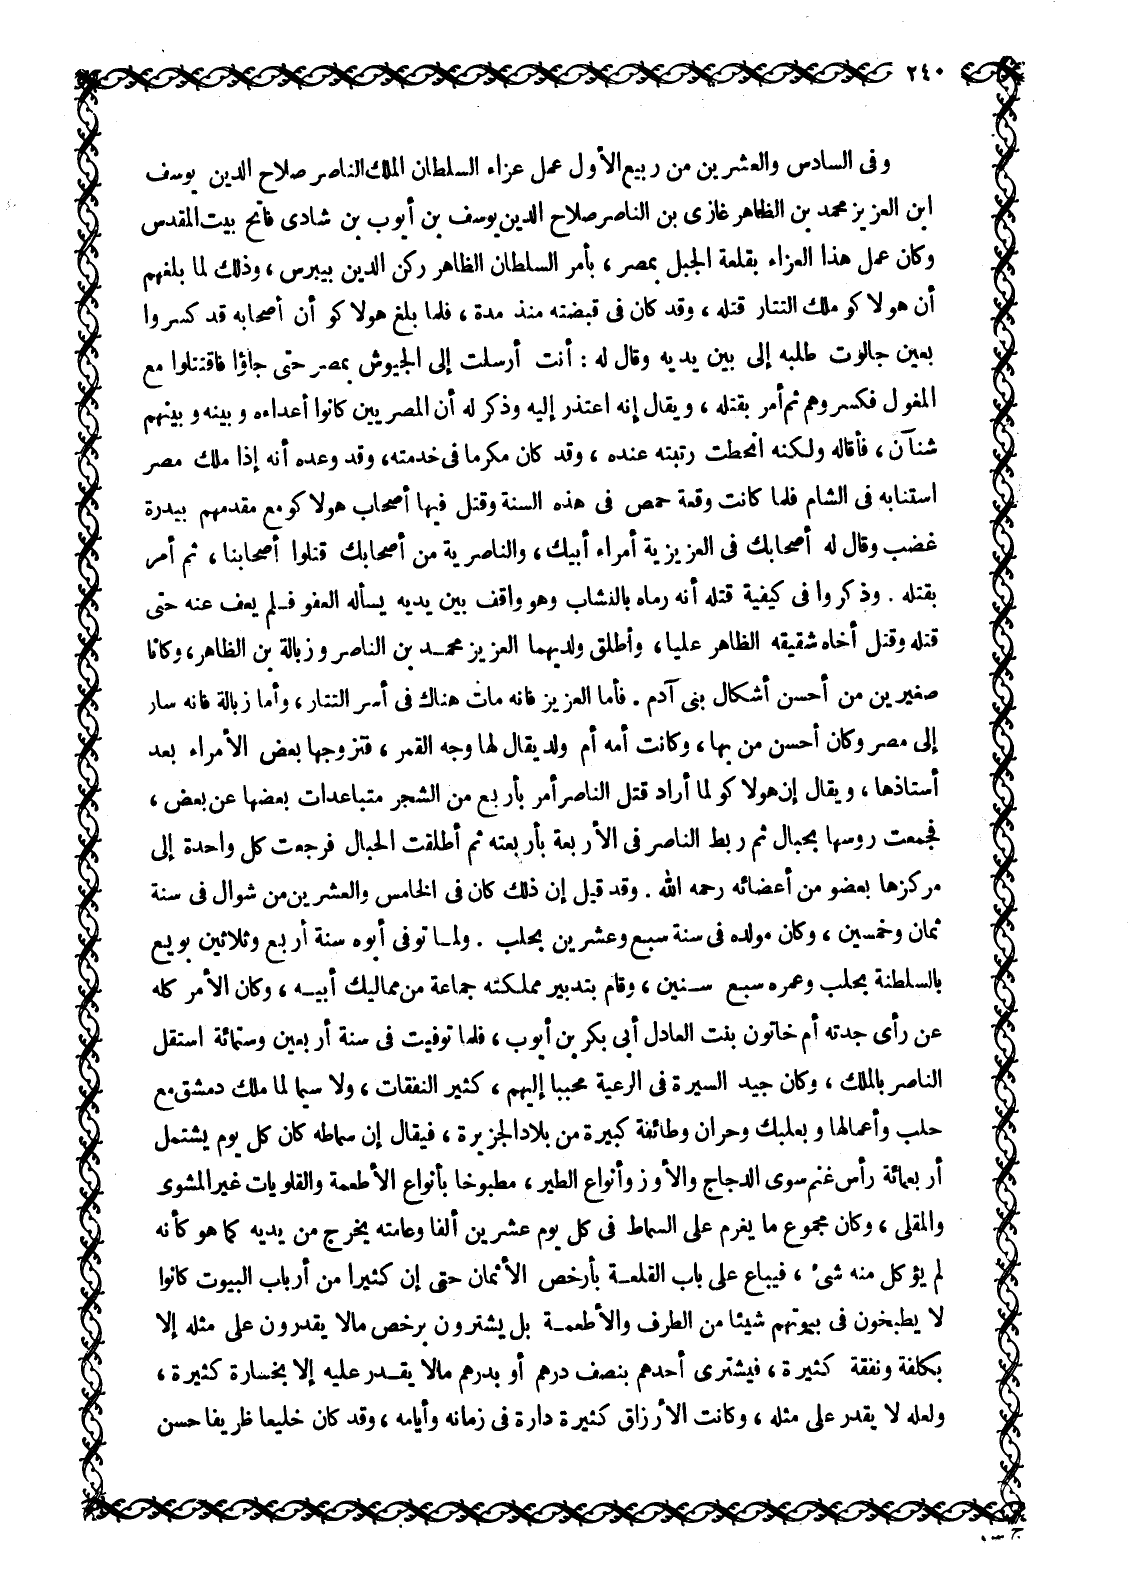 ٢٤٠
وفى السادس والعشرين من ربيع الأول عمل عزاء السلطان الملك الناصر صلاح الدين يوسف
ابن العزيز محمد بن الظاهر غازى بن الناصر صلاح الدين يوسف بن أيوب بن شادى فاتح بيت المقدس
وكان عمل هذا العزاء بقلعة الجبل بمصر ، بأمر السلطان الظاهر ركن الدين بيبرس ، وذلك لما بلغهم
أن هولاكو ملك التتار قتله ، وقد كان فى قبضته منذ مدة ، فلما بلغ هولاكو أن أصحابه قد كسروا
بعين جالوت طلبه إلى بين يديه وقال له : أنت أرسلت إلى الجيوش بمصر حتى جاؤا فاقتتلوا مع
المغول فكسروهم ثم أمر بقتله ، ويقال إنه اعتذر إليه وذكر له أن المصريين كانوا أعداءه وبينه وبينهم
شنآن ، فأقاله ولكنه انحطت رتبته عنده ، وقد كان مكرما فى خدمته، وقد وعده أنه إذا ملك مصر
استنابه فى الشام فلما كانت وقعة حمص فى هذه السنة وقتل فيها أصحاب هولاكو مع مقدمهم بيدرة
غضب وقال له أصحابك فى العزيزية أمراء أبيك، والناصرية من أصحابك قتلوا أصحابنا ، ثم أمر
بقتله . وذكروا فى كيفية قتله أنه رماه بالنشاب وهو واقف بين يديه يسأله العفو فلم يعف عنه حتى
قتله وقتل أخاه شقيقه الظاهر عليا، وأطلق ولديهما العزيز محمد بن الناصر وزبالة بن الظاهر، وكانا
صغيرين من أحسن أشكال بنى آدم . فأما العزيز فانه مات هناك فى أسر التتار ، وأما زبالة فانه سار
إلى مصر وكان أحسن من بها ، وكانت أمه أم ولد يقال لها وجه القمر ، فتزوجها بعض الأمراء بعد
أستاذها ، ويقال إن هولاكو لما أراد قتل الناصر أمر بأربع من الشجر متباعدات بعضها عن بعض ،
فجمعت روسها بحبال ثم ربط الناصر فى الأربعة بأربعته ثم أطلقت الحبال فرجعت كل واحدة إلى
مركزها بعضو من أعضائه رحمه الله . وقد قيل إن ذلك كان فى الخامس والعشرين من شوال فى سنة
ثمان وخمسين ، وكان مولده فى سنة سبع وعشرين بحلب . ولما توفى أبوه سنة أربع وثلاثين بويع
بالسلطنة بحلب وعمره سبع سنين ، وقام بتدبير مملكته جماعة من مماليك أبيه ، وكان الأمر كله
عن رأى جدته أم خاتون بنت العادل أبى بكر بن أيوب ، فلما توفيت فى سنة أربعين وستمائة استقل
الناصر بالملك ، وكان جيد السيرة فى الرعية محببا إليهم ، كثير النفقات ، ولا سيما لما ملك دمشق مع
حلب وأعمالها وبعلبك وحران وطائفة كبيرة من بلاد الجزيرة ، فيقال إن سماطه كان كل يوم يشتمل
أربعمائة رأس غنم سوى الدجاج والأوز وأنواع الطير ، مطبوخا بأنواع الأطعمة والقلويات غير المشوى
والمقلى ، وكان مجموع ما يغرم على السماط فى كل يوم عشرين ألفا وعامته يخرج من يديه كما هو كأنه
لم يؤكل منه شىء ، فيباع على باب القلعة بأرخص الأثمان حتى إن كثيرا من أرباب البيوت كانوا
لا يطبخون فى بيوتهم شيئا من الطرف والأطعمة بل يشترون برخص مالا يقدرون على مثله إلا
بكلفة ونفقة كثيرة ، فيشترى أحدهم بنصف درهم أو بدرهم مالا يقدر عليه إلا بخسارة كثيرة ،
ولعله لا يقدر على مثله ، وكانت الأرزاق كثيرة دارة فى زمانه وأيامه ، وقد كان خليعا ظريفا حسن